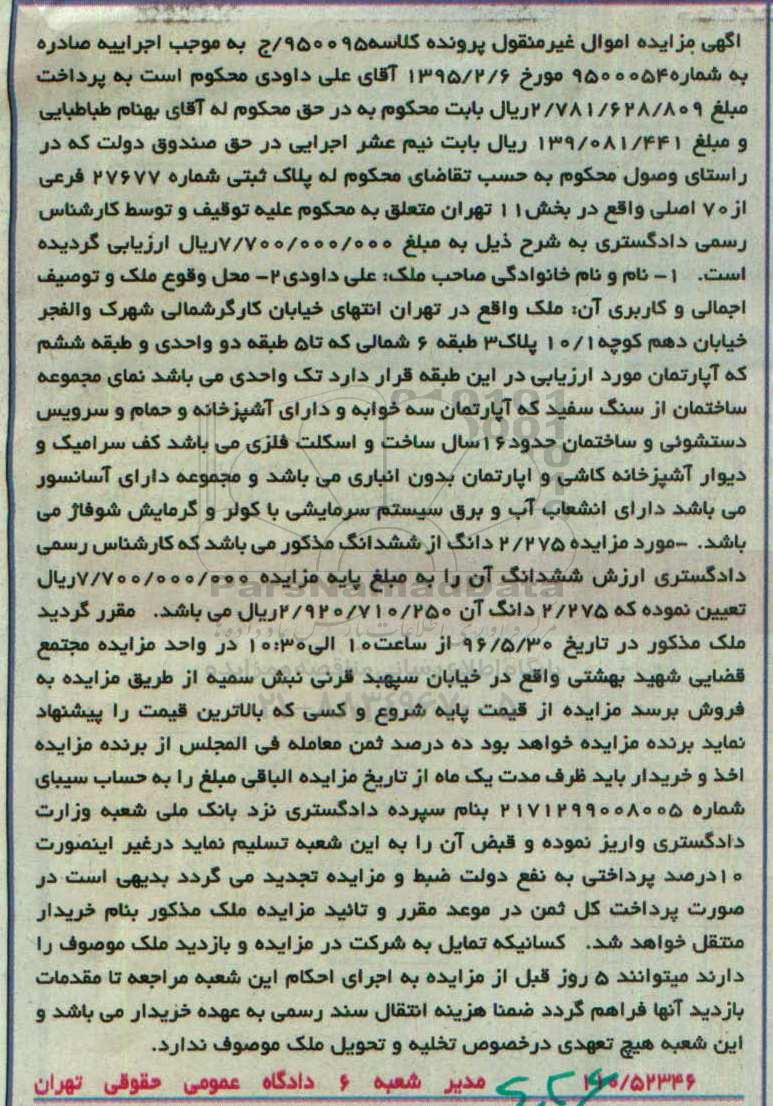 آگهی مزایده اموال غیرمنقول پرونده کلاسه۹۵۰۰۹۵/ج به موجب اجراییه صادره
به شماره۹۵۰۰۰۵۴ مورخ ۱۳۹۵/۲/۶ آقای علی داودی محکوم است به پرداخت
مبلغ ۲/۷۸۱/۶۲۸/۸۰۹ریال بابت محکوم به در حق محکوم له آقای بهنام طباطبایی
و مبلغ ۱۳۹/۰۸۱/۴۴۱ ریال بابت نیم عشر اجرایی در حق صندوق دولت که در
راستای وصول محکوم به حسب تقاضای محکوم له پلاک ثبتی شماره ۲۷۶۷۷ فرعی
از۷۰ اصلی واقع در بخش۱۱ تهران متعلق به محکوم علیه توقیف و توسط کارشناس
رسمی دادگستری به شرح ذیل به مبلغ ۷/۷۰۰/۰۰۰/۰۰۰ریال ارزیابی گردیده
است. ۱- نام و نام خانوادگی صاحب ملک: علی داودی۲- محل وقوع ملک و توصیف
اجمالی و کاربری آن: ملک واقع در تهران انتهای خیابان کارگرشمالی شهرک والفجر
خیابان دهم کوچه۱۰/۱ پلاک۳ طبقه ۶ شمالی که تا۵ طبقه دو واحدی و طبقه ششم
که آپارتمان مورد ارزیابی در این طبقه قرار دارد تک واحدی می باشد نمای مجموعه
ساختمان از سنگ سفید که آپارتمان سه خوابه و دارای آشپزخانه و حمام و سرویس
دستشوئی و ساختمان حدود۱۶سال ساخت و اسکلت فلزی می باشد کف سرامیک و
دیوار آشپزخانه کاشی و اپارتمان بدون انباری می باشد و مجموعه دارای آسانسور
می باشد دارای انشعاب آب و برق سیستم سرمایشی با کولر و گرمایش شوفاژ می
باشد. -مورد مزایده ۲/۲۷۵ دانگ از ششدانگ مذکور می باشد که کارشناس رسمی
دادگستری ارزش ششدانگ آن را به مبلغ پایه مزایده ۷/۷۰۰/۰۰۰/۰۰۰ریال
تعیین نموده که ۲/۲۷۵ دانگ آن ۲/۹۲۰/۷۱۰/۲۵۰ریال می باشد. مقرر گردید
ملک مذکور در تاریخ ۹۶/۵/۳۰ از ساعت۱۰ الی۱۰:۳۰ در واحد مزایده مجتمع
قضایی شهید بهشتی واقع در خیابان سپهبد قرنی نبش سمیه از طریق مزایده به
فروش برسد مزایده از قیمت پایه شروع و کسی که بالاترین قیمت را پیشنهاد
نماید برنده مزایده خواهد بود ده درصد ثمن معامله فی المجلس از برنده مزایده
اخذ و خریدار باید ظرف مدت یک ماه از تاریخ مزایده الباقی مبلغ را به حساب سیبای
شماره ۲۱۷۱۲۹۹۰۰۸۰۰۵ بنام سپرده دادگستری نزد بانک ملی شعبه وزارت
دادگستری واریز نموده و قبض آن را به این شعبه تسلیم نماید درغیر اینصورت
۱۰درصد پرداختی به نفع دولت ضبط و مزایده تجدید می گردد بدیهی است در
صورت پرداخت کل ثمن در موعد مقرر و تائید مزایده ملک مذکور بنام خریدار
منتقل خواهد شد. کسانیکه تمایل به شرکت در مزایده و بازدید ملک موصوف را
دارند میتوانند ۵ روز قبل از مزایده به اجرای احکام این شعبه مراجعه تا مقدمات
بازدید آنها فراهم گردد ضمنا هزینه انتقال سند رسمی به عهده خریدار می باشد و
این شعبه هیچ تعهدی درخصوص تخلیه و تحویل ملک موصوف ندارد.
۱۱۰/۵۲۳۴۶ مدیر شعبه ۶ دادگاه عمومی حقوقی تهران
ParsNamadData